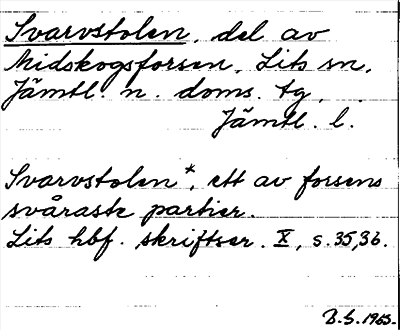 Svarvstolen, del av
Midskogsforsen, Lits sn,
Jämtl. n. doms. tg,
Jämtl. l.
Svarvstolen*, ett av forsens
svåraste partier.
Lits hbf. skriftser. X, s. 35,36.
B.S. 1965.